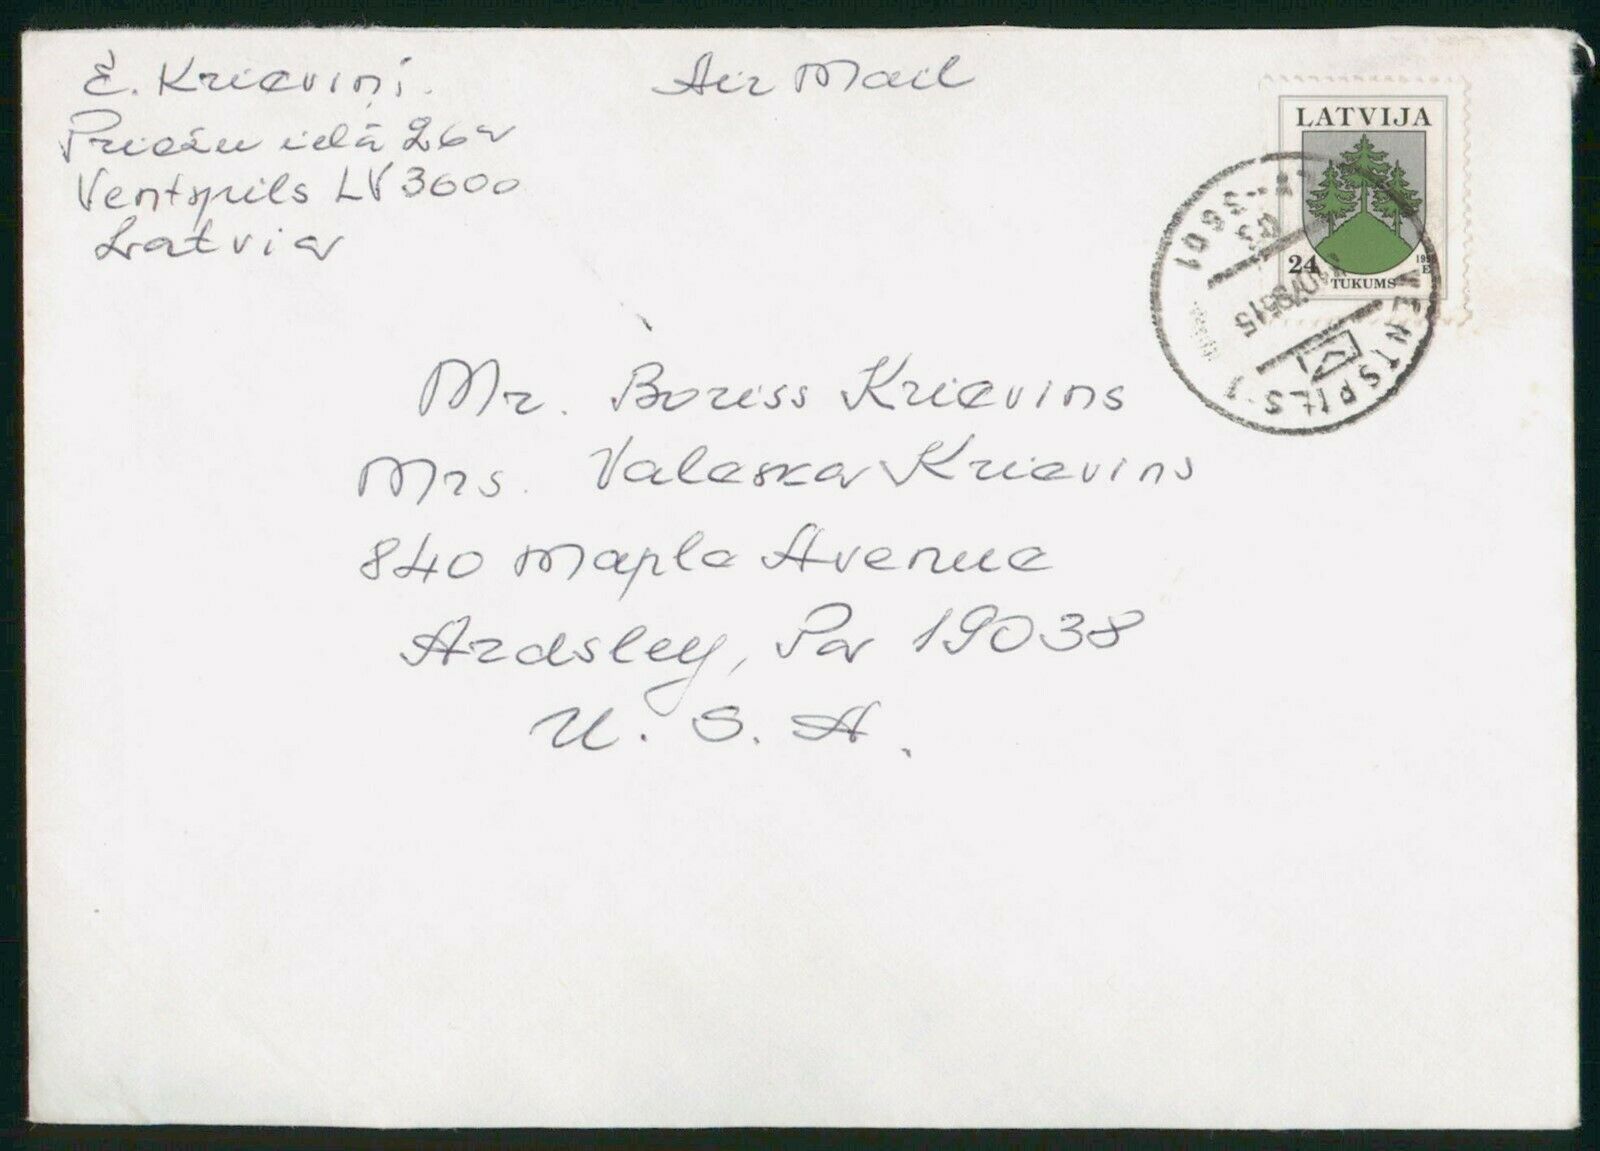 Ē. Krieviņi.
Priežu ielā 26a
Ventspils LV 3600
Latvia
Air Mail
LATVIJA
24
TUKUMS
LV-3601
VENTSPILS-1
Mr. Boriss Krievins
Mrs. Valeska Krievins
840 Maple Avenue
Ardsley, Pa 19038
U. S. A.